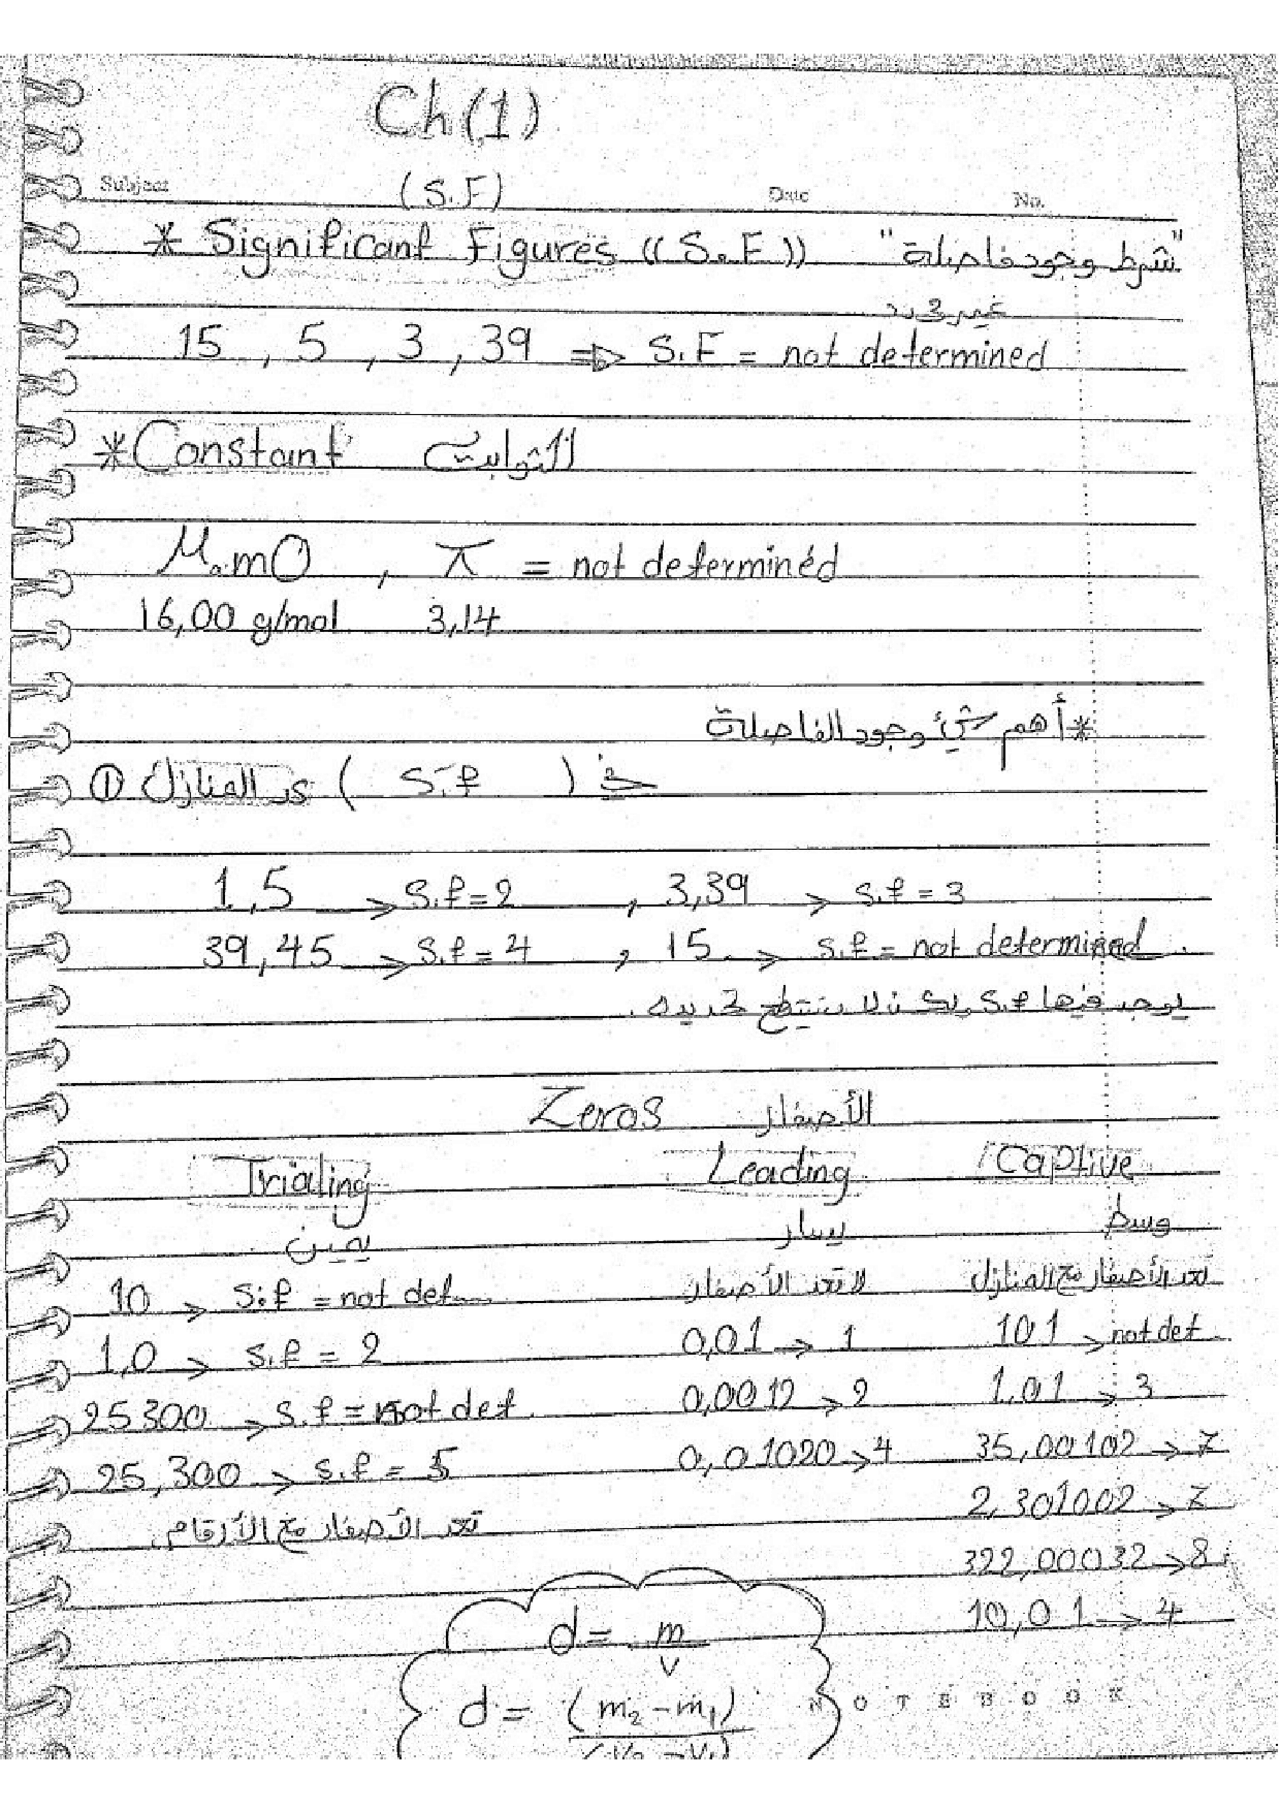 Ch(1)
Subject (S.F) Date No.
* Significant Figures ((S.F)) "شرط وجود فاصلة"
15 , 5 , 3 , 39 => S.F = not determined
*Constant الثوابت
M.mO , π = not determined
16,00 g/mol 3,14
*أهم شيئ وجود الفاصلة
① المنازل ( S.f )
1,5 → S.f = 2 , 3,39 → S.f = 3
39,45 → S.f = 4 , 15 → S.f = not determined
يوجد فيها S.f
Zeros الأصفار
Trialing Leading Captive
يمين يسار وسط
10 → S.f = not det لا تعد الأصفار تعد الأصفار مع المنازل
1,0 → S.f = 2 0,01 → 1 101 → not det
25300 → S.f = not det 0,0012 → 2 1,01 → 3
25,300 → S.f = 5 0,01020 → 4 35,00102 → 7
تعد الأصفار مع الأرقام. 2,301002 → 7
322,00032 → 8
10,01 → 4
d = m
v
d = (m₂ - m₁)
(V₂ - V₁)
NOTEBOOK